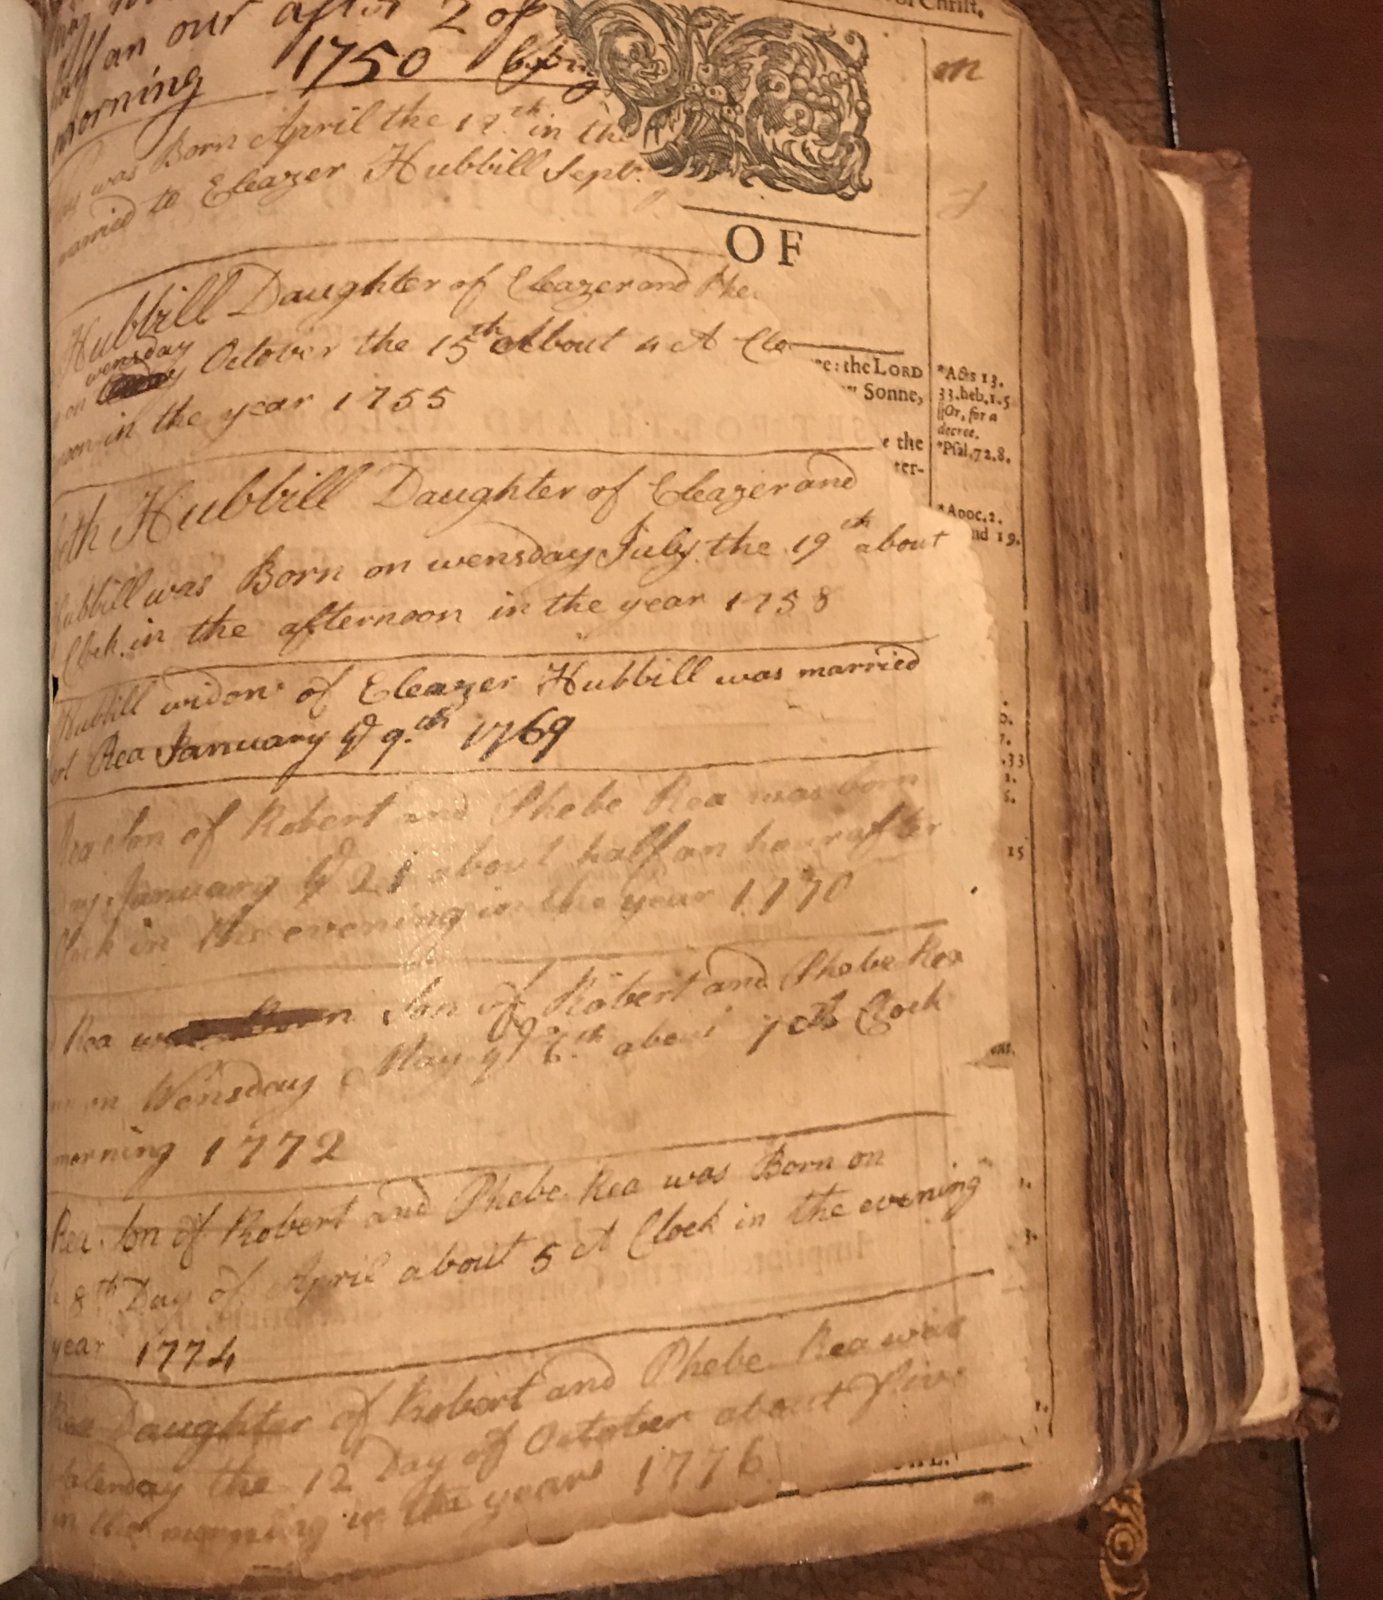 of Christ.
half an our after 2 of
morning 1750
m
was Born April the 17th in the
married to Eleazer Hubbill Septr.
OF
Hubbill Daughter of Eleazer and Phe
wensday
on October the 15th about 4 A Clo
noon in the year 1755
re: the LORD
Sonne,
the
ter-
*Acts 13.
33.heb.1.5
||Or, for a
decree.
*Psal.72.8.
*Apoc.2.
nd 19.
eth Hubbill Daughter of Eleazer and
Hubbill was Born on wensday July the 19th about
Clock in the afternoon in the year 1758
Hubbill widow of Eleazer Hubbill was married
rt Rea January ye 9th 1769
Rea Son of Robert and Phebe Rea was born
January ye 21 about half an hour after
Clock in the evening in the year 1770
.33
15
Rea was Born Son of Robert and Phebe Rea
on Wensday May ye 6th about 7 A Clock
morning 1772
Rea Son of Robert and Phebe Rea was Born on
8th Day of April about 5 A Clock in the evening
year 1774
Rea Daughter of Robert and Phebe Rea was
Saterday the 12 Day of October about five
in the morning in the year 1776